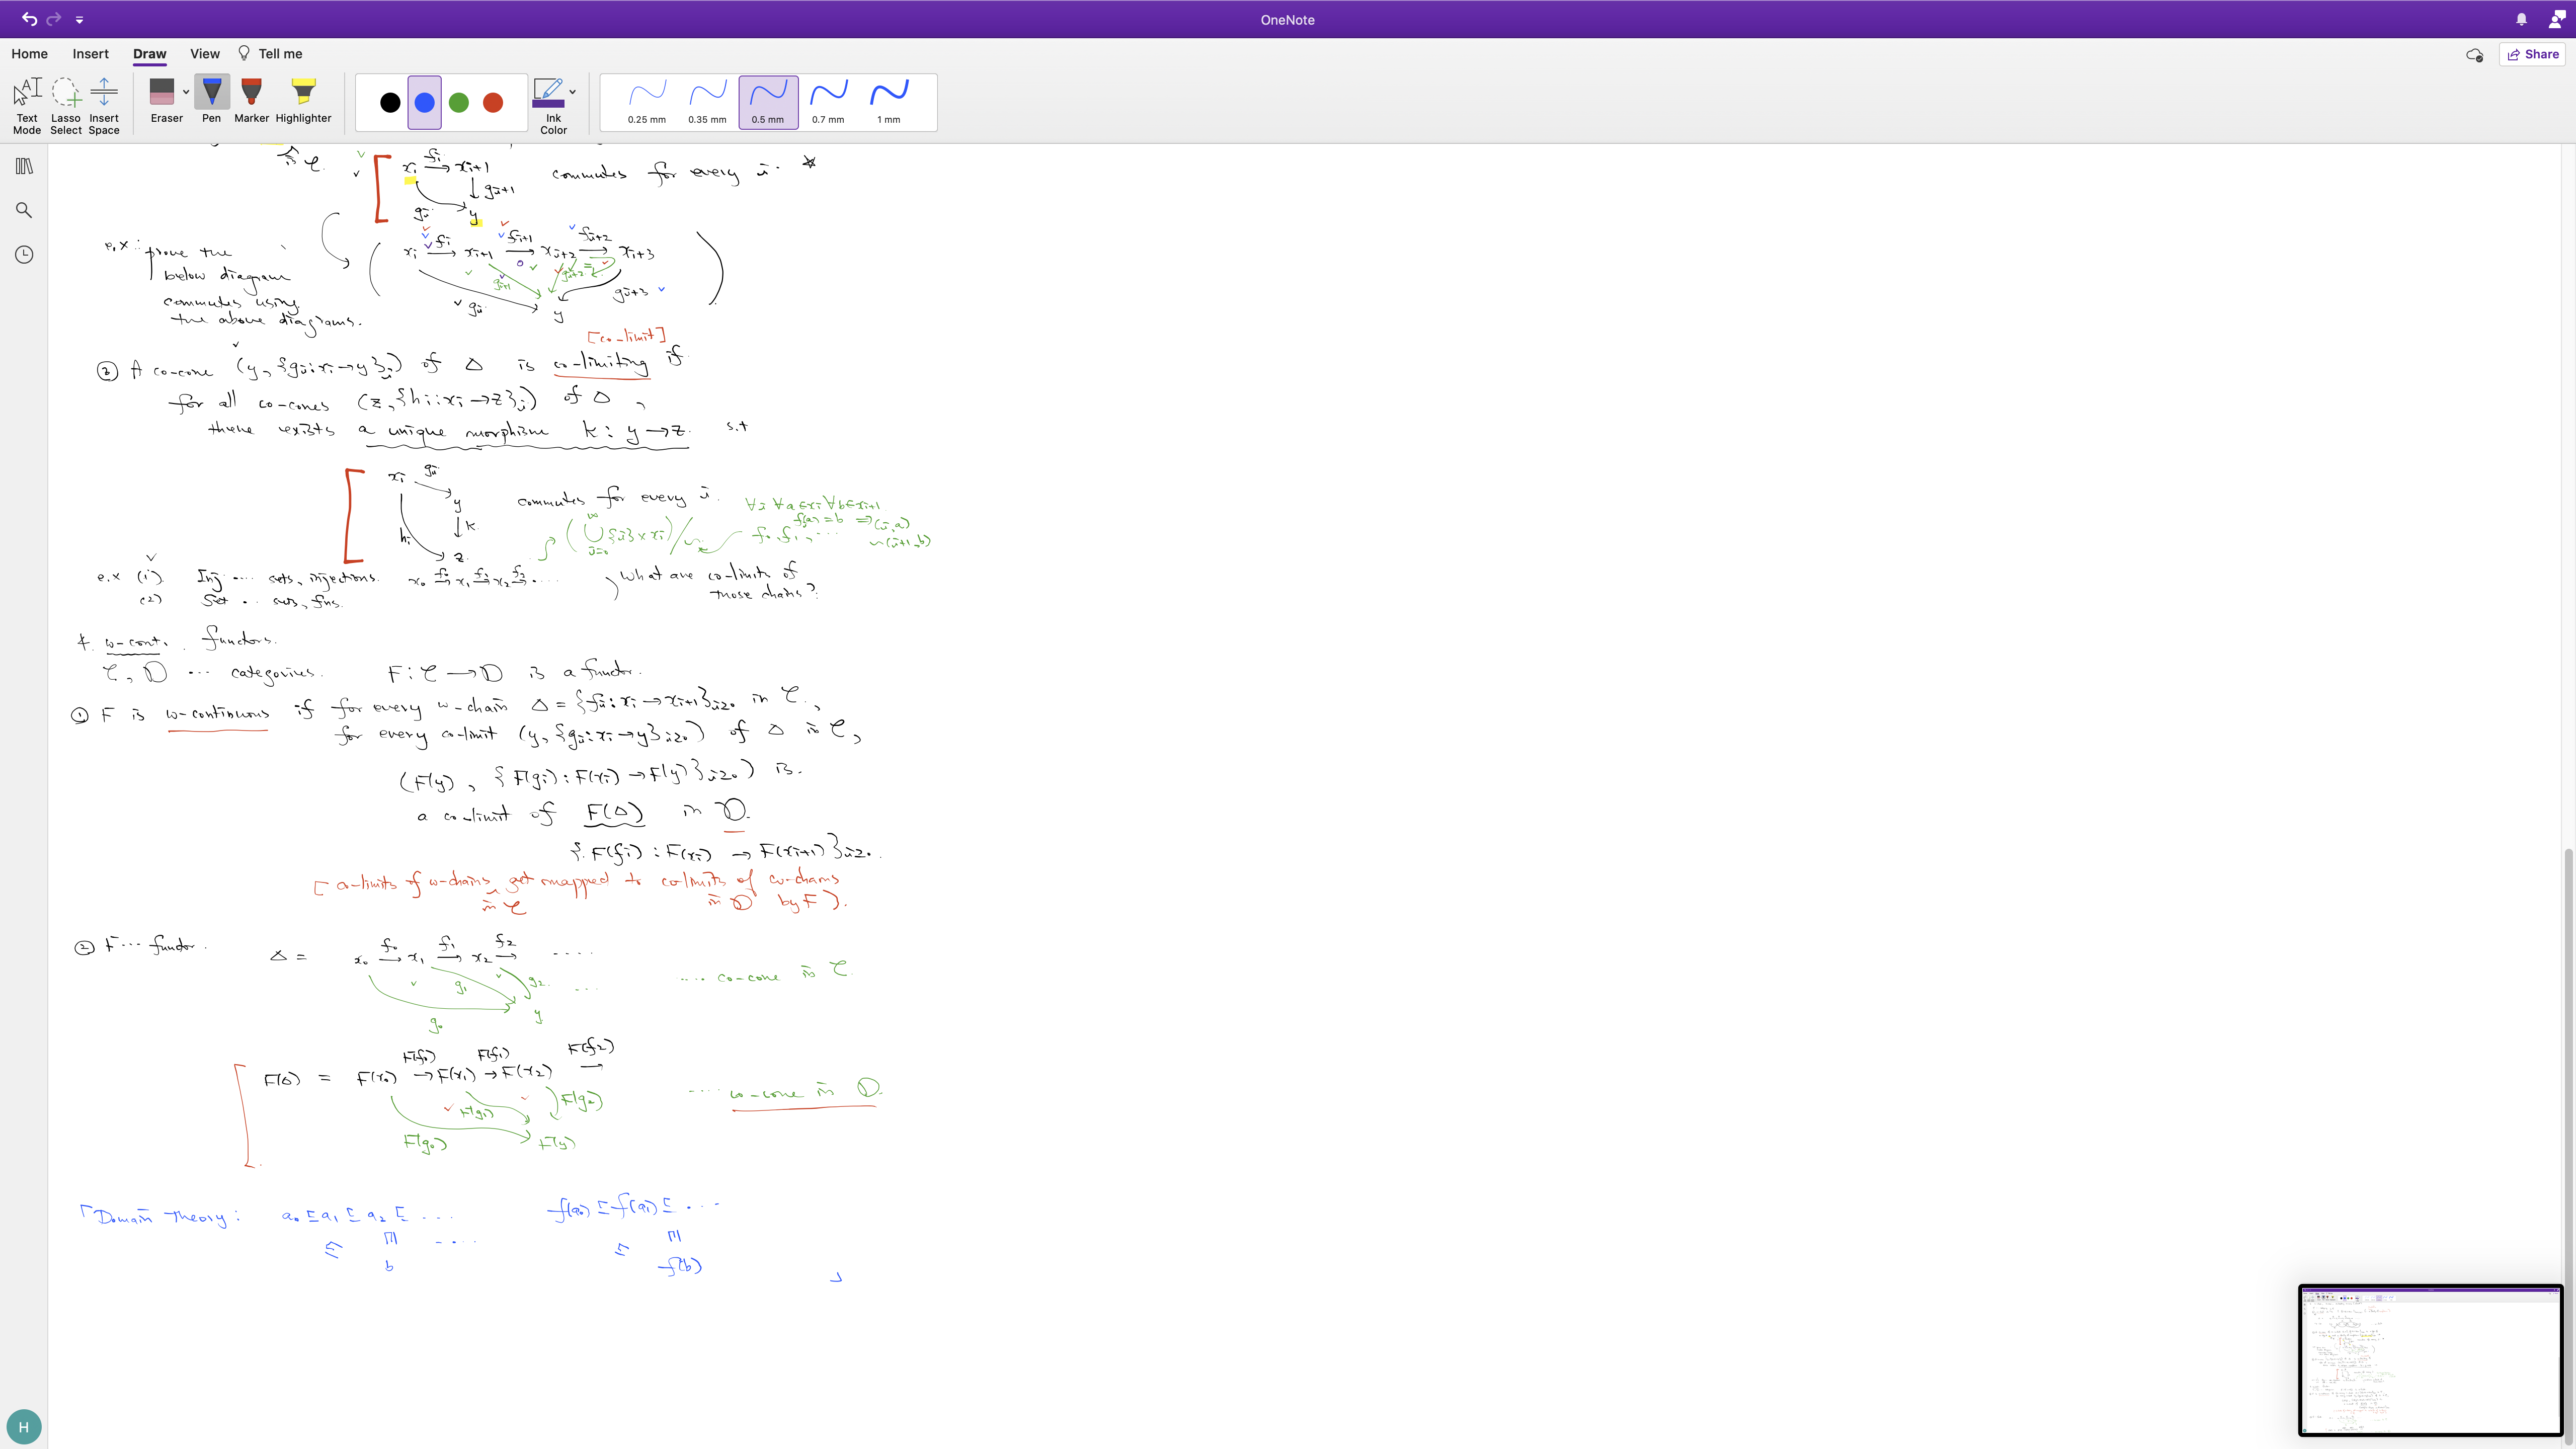 OneNote
Home Insert Draw View Tell me
Share
Text Mode
Lasso Select
Insert Space
Eraser
Pen
Marker
Highlighter
Ink Color
0.25 mm
0.35 mm
0.5 mm
0.7 mm
1 mm
in C.
xi fi → xi+1
commutes for every i.
gi+1
gi y
e.x : prove the
below diagram
commutes using
the above diagrams.
xi fi → xi+1 fi+1 → xi+2 fi+2 → xi+3
gi+1 gi+2
gi y gi+3
[co-limit]
② A co-cone (y, {gi : xi → y}i) of Δ is co-limiting if
for all co-cones (z, {hi : xi → z}i) of Δ,
there exists a unique morphism k : y → z s.t
xi gi
y
k
hi z
commutes for every i.
∀i ∀a∈xi ∀b∈xi+1
f(a) = b ⇒ (i, a)
~ (i+1, b)
(∞⋃i=0 {i} × xi) / ~ f0, f1, ...
e.x (1) Inj ... sets, injections. x0 f0 → x1 f1 → x2 f2 → ....
(2) Set .. sets, fns.
What are co-limits of
those chains?
4. ω-cont. functors.
C, D ... categories. F : C → D is a functor.
① F is ω-continuous if for every ω-chain Δ = {fi : xi → xi+1}i≥0 in C,
for every co-limit (y, {gi : xi → y}i≥0) of Δ in C,
(F(y), {F(gi) : F(xi) → F(y)}i≥0) is
a co-limit of F(Δ) in D.
{F(fi) : F(xi) → F(xi+1)}i≥0.
[co-limits of ω-chains get mapped to co-limits of ω-chains
in C in D by F].
② F ... functor.
Δ = x0 f0 → x1 f1 → x2 f2 → ....
g1 g2 ...
g0 y
.... co-cone in C.
F(f0) F(f1) F(f2)
F(Δ) = F(x0) → F(x1) → F(x2) →
F(g1) F(g2)
F(g0) F(y)
.... co-cone in D.
「Domain Theory : a0 ⊑ a1 ⊑ a2 ⊑ ... f(a0) ⊑ f(a1) ⊑ ...
⊑ ⊑ ....
b
⊑ ⊑
f(b) 」
H